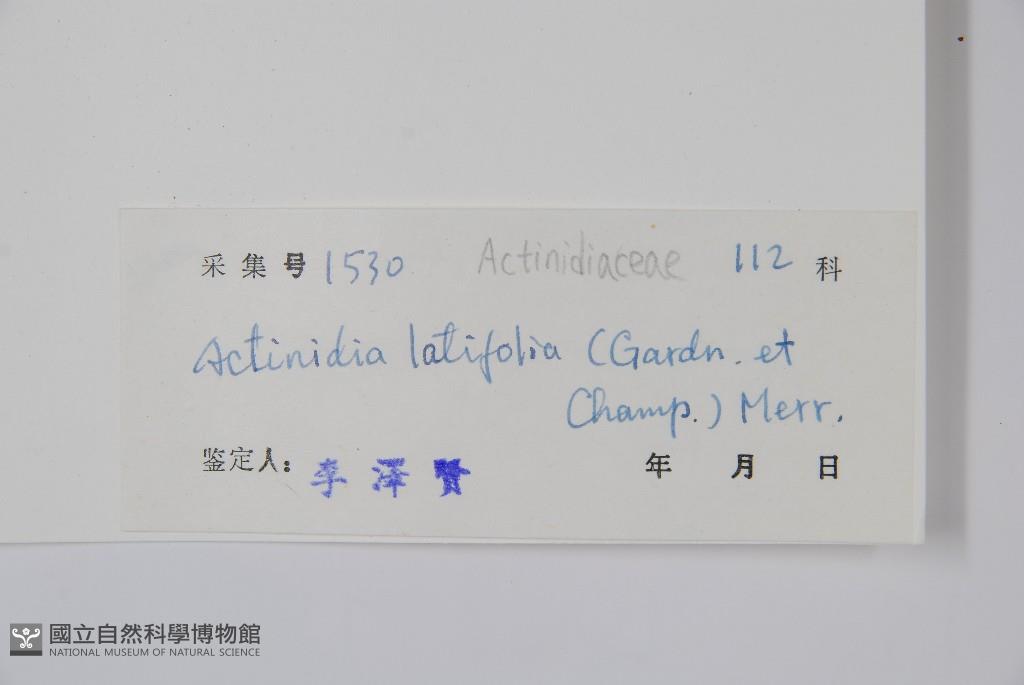 采集号 1530 Actinidiaceae 112 科
Actinidia latifolia (Gardn. et
Champ.) Merr.
鉴定人: 李澤賢 年 月 日
國立自然科學博物館
NATIONAL MUSEUM OF NATURAL SCIENCE